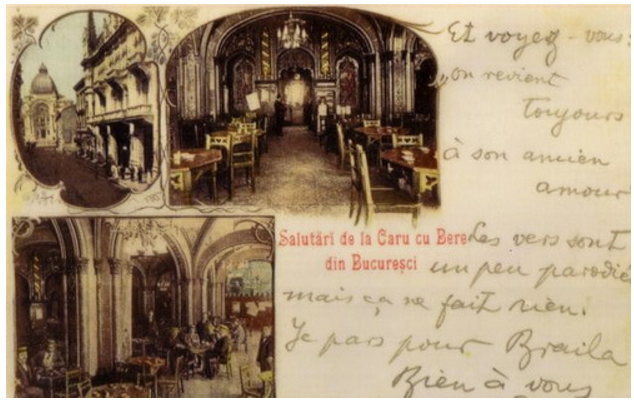 Et voyez-vous:
„on revient
toujours
à son ancien
amour
Salutări de la Caru cu Bere
din Bucuresci
Les vers sont
un peu parodié
mais ça ne fait rien.
Je pars pour Braila
Bien à vous